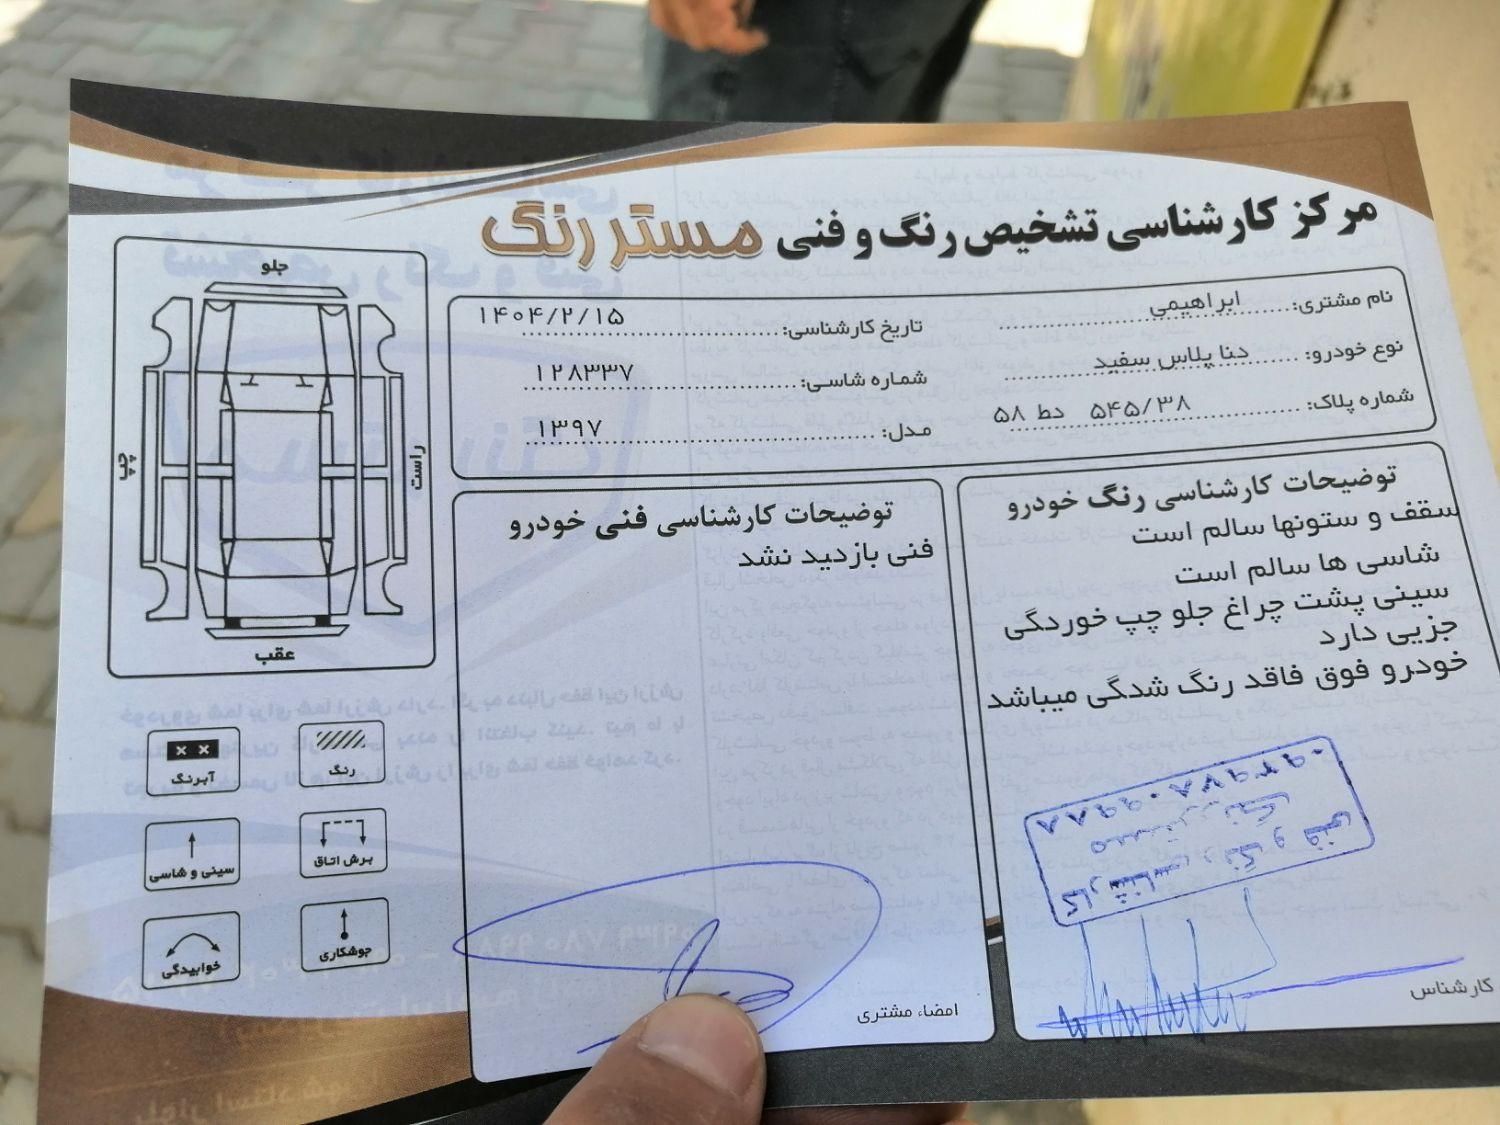 مرکز کارشناسی تشخیص رنگ و فنی مستر رنگ
نام مشتری: ابراهیمی
تاریخ کارشناسی: ۱۴۰۴/۲/۱۵
نوع خودرو: دنا پلاس سفید
شماره شاسی: ۱۲۸۳۳۷
شماره پلاک: ۵۴۵/۳۸ دط ۵۸
مدل: ۱۳۹۷
توضیحات کارشناسی رنگ خودرو
سقف و ستونها سالم است
شاسی ها سالم است
سینی پشت چراغ جلو چپ خوردگی
جزیی دارد
خودرو فوق فاقد رنگ شدگی میباشد
کارشناسی رنگ و فنی
مستر رنگ
۰۹۳۹۷۸۰۹۹۸۸
کارشناس
توضیحات کارشناسی فنی خودرو
فنی بازدید نشد
امضاء مشتری
جلو
راست
چپ
عقب
رنگ
آبرنگ
برش اتاق
سینی و شاسی
جوشکاری
خوابیدگی